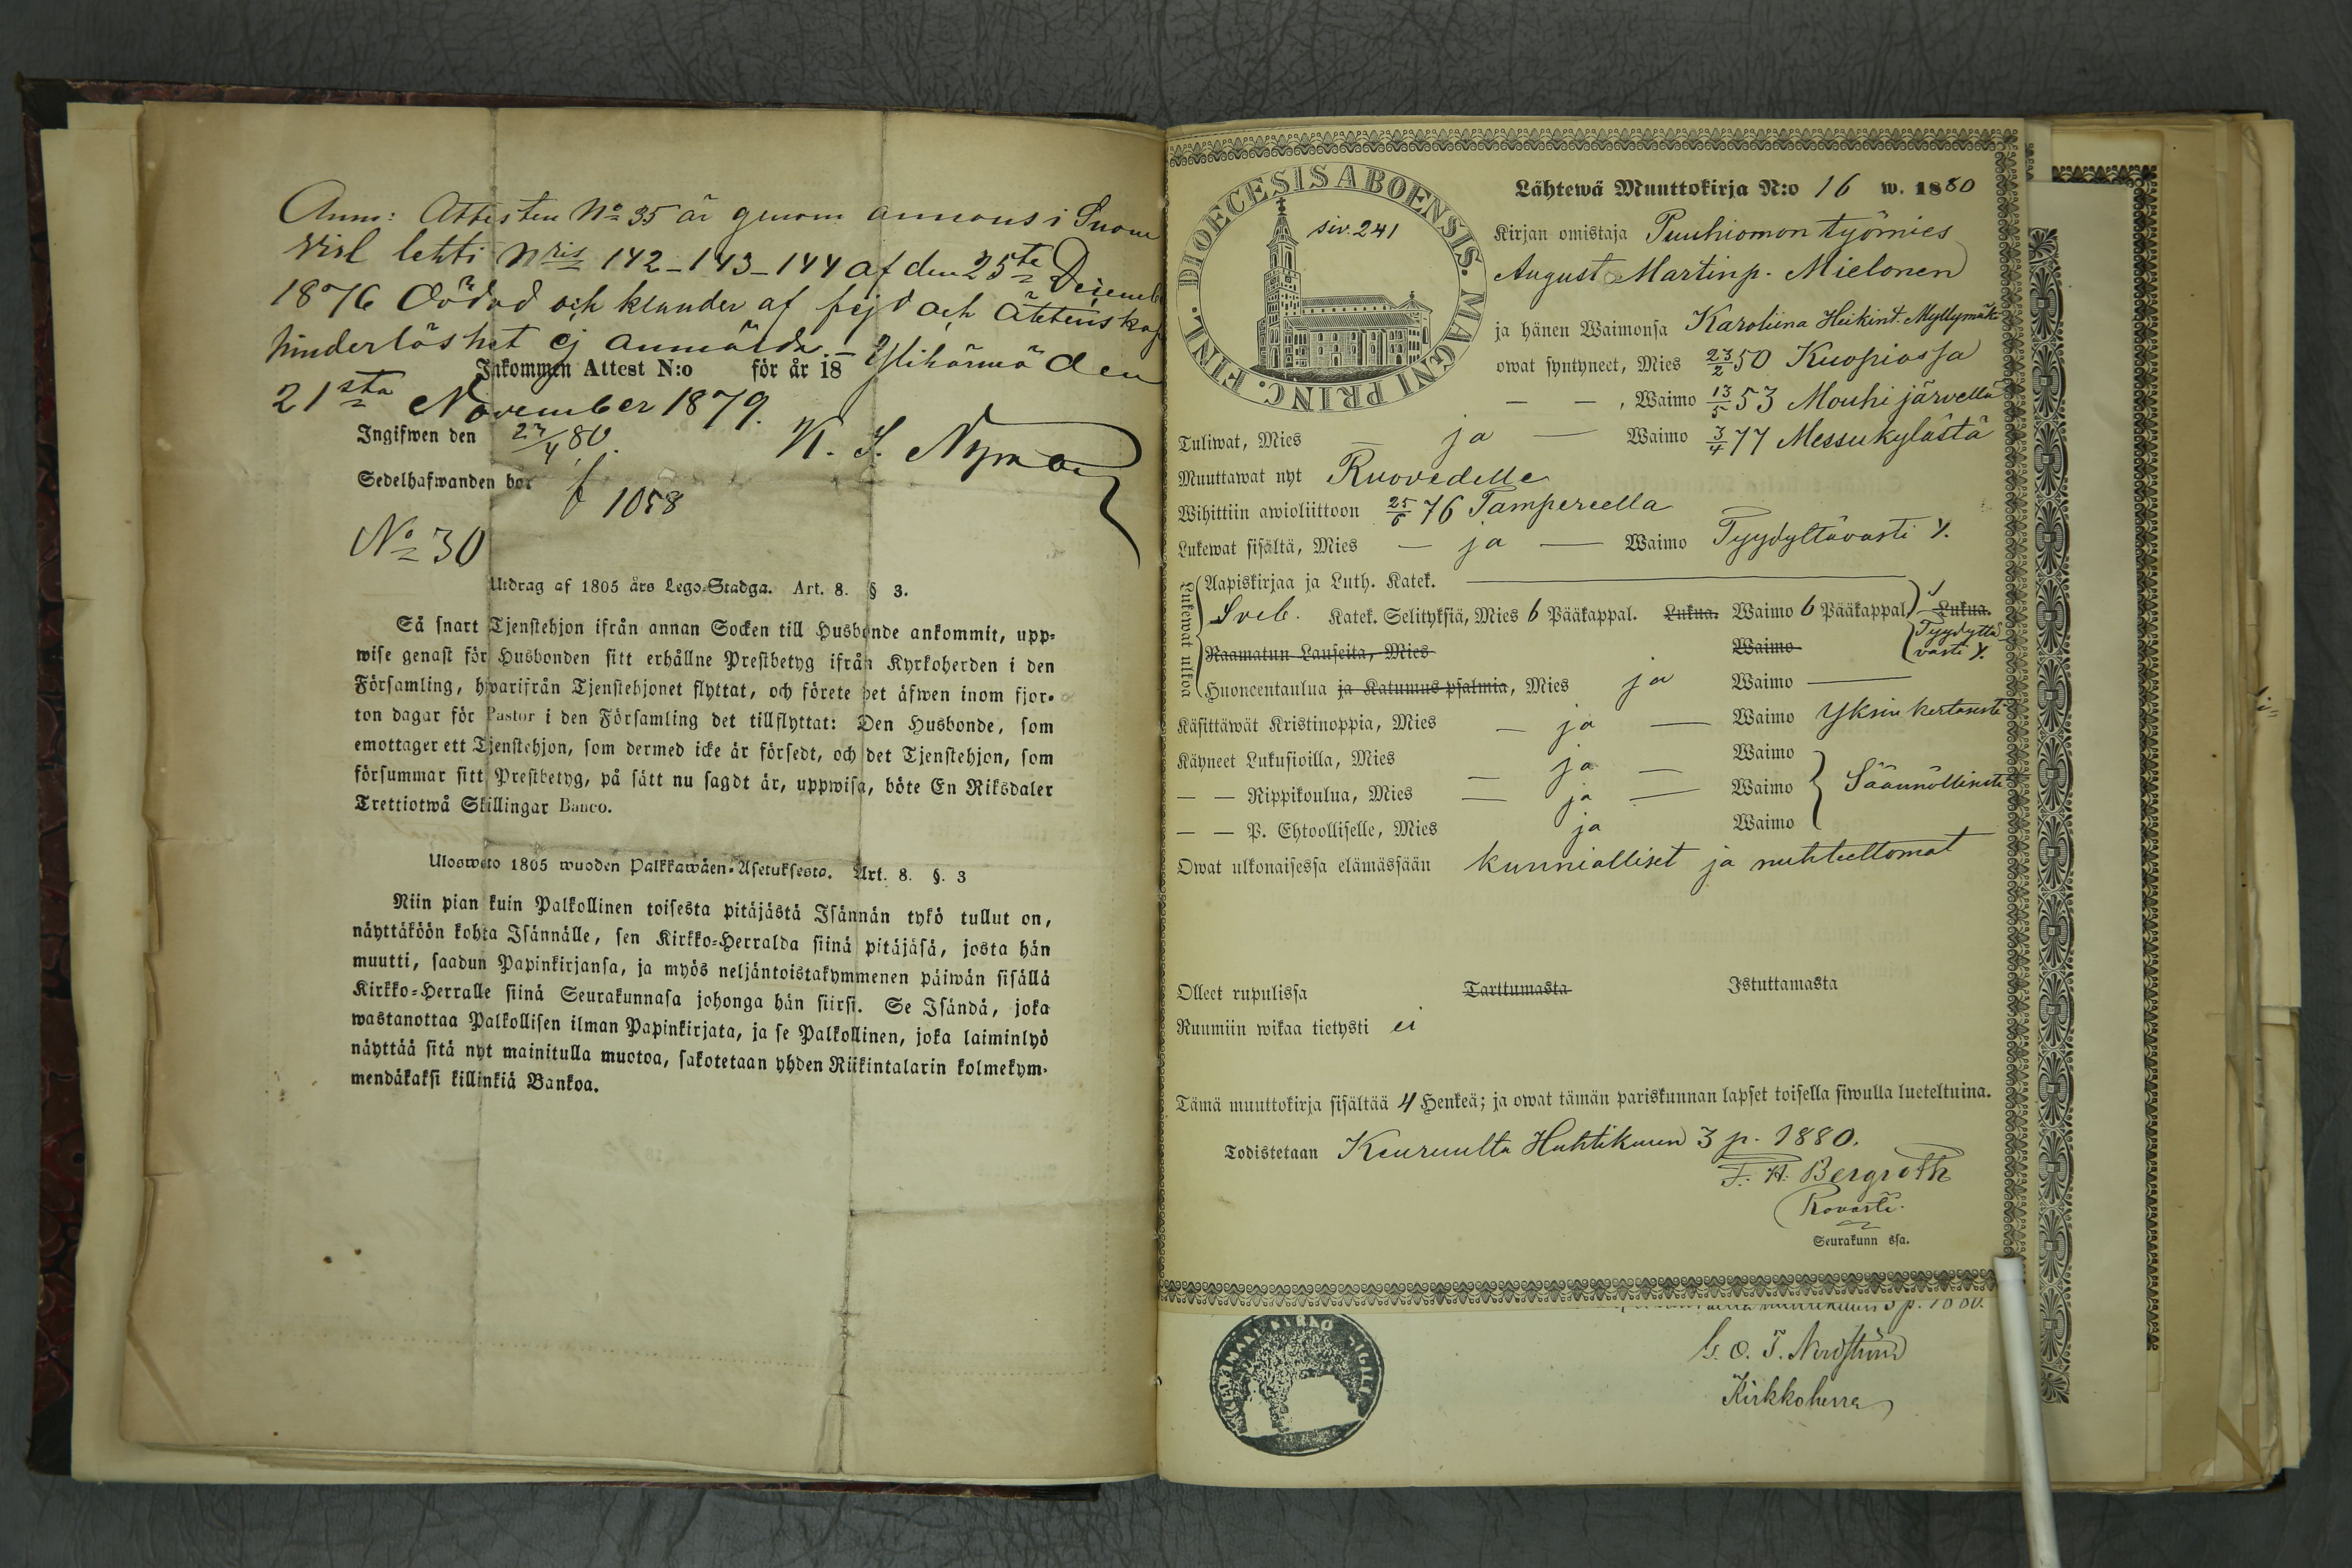 Anm: Attesten No 35 är genom annons i Suom
Virl lehti Nris 142-143-144 af den 25te Decemb
1876 dödad och klander af fejd och ächtenskaps
hinderlöshet ej anmäldt. – Ylihärmä den
Inkommen Attest N:o för år 18
21sta November 1879.
K. J. Nyman
Ingifwen den 27/4 80.
Sedelhafwanden bor f 1058
No 30
Utdrag af 1805 års Lego-Stadga. Art. 8. § 3.
Så snart Tjenstehjon ifrån annan Socken till Husbonde ankommit, upp-
wise genast för Husbonden sitt erhållne Prestbetyg ifrån Kyrkoherden i den
Församling, hwarifrån Tjenstehjonet flyttat, och förete det äfwen inom fjor-
ton dagar för Pastor i den Församling det tillflyttat: Den Husbonde, som
emottager ett Tjenstehjon, som dermed icke är försedt, och det Tjenstehjon, som
försummar sitt Prestbetyg, på sätt nu sagdt är, uppwisa, böte En Riksdaler
Trettiotwå Skillingar Banco.
Uloswето 1805 wuoden Palkkawäen-Asetuksesta. Art. 8. §. 3
Niin pian kuin Palkollinen toisesta pitäjästä Isännän tykö tullut on,
näyttäköön kohta Isännälle, sen Kirkko-Herralda siinä pitäjäsä, josta hän
muutti, saadun Papinkirjansa, ja myös neljäntoistakymmenen päiwän sisällä
Kirkko-Herralle siinä Seurakunnasa johonga hän siirsi. Se Isändä, joka
wastanottaa Palkollisen ilman Papinkirjata, ja se Palkollinen, joka laiminlyö
näyttää sitä nyt mainitulla muotoa, sakotetaan yhden Riikintalarin kolmekym-
mendäkaksi killinkiä Bankoa.
DIOECESIS ABOENSIS. MAGNI PRINC. FINL.
siv. 241
Lähtewä Muuttokirja N:o 16 w. 1880
Kirjan omistaja Puuhiomon työmies
August Martinp. Mielonen
ja hänen Waimonsa Karoliina Heikint. Myllymäki
owat syntyneet, Mies 23/2 50 Kuopiossa
— — , Waimo 13/5 53 Mouhijärvellä
Tuliwat, Mies — ja — Waimo 3/4 77 Messukylästä
Muuttawat nyt Ruovedelle
Wihittiin awioliittoon 25/6 76 Tampereella
Lukewat sisältä, Mies — ja — Waimo Tyydyttävästi y.
Lukewat ulkoa
Aapiskirjaa ja Luth. Katek.
Sveb. Katek. Selityksiä, Mies 6 Pääkappal. Lukua. Waimo 6 Pääkappal. Lukua.
Tyydyttä-
västi y.
Raamatun Lauseita, Mies Waimo
Huoneentaulua ja Katumus psalmia, Mies ja Waimo —
Käsittäwät Kristinoppia, Mies — ja — Waimo Yksinkertaisesti
Käyneet Lukusioilla, Mies — ja — Waimo
— — Rippikoulua, Mies — ja — Waimo Säännöllisesti
— — P. Ehtoolliselle, Mies ja Waimo
Owat ulkonaisessa elämässään kunnialliset ja nuhteettomat
Olleet rupulissa Tarttumasta Istuttamasta
Ruumiin wikaa tietysti ei
Tämä muuttokirja sisältää 4 Henkeä; ja owat tämän pariskunnan lapset toisella siwulla lueteltuina.
Todistetaan Keuruulta Huhtikuun 3 p. 1880.
F. H. Bergroth
Rovasti.
Seurakunn ssa.
G. O. T. Nordström
Kirkkoherra